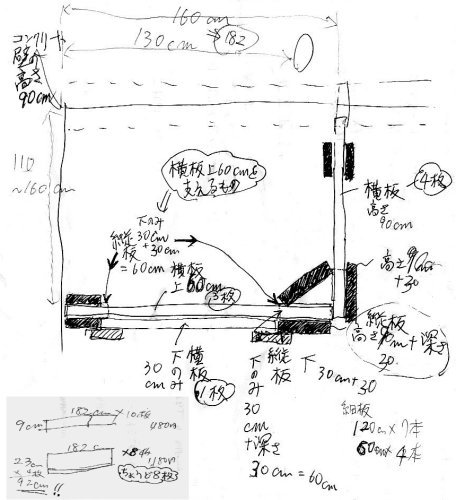 160cm
130cm → 182
コンクリート
壁の
高さ
90cm
110
~160cm
横板上60cmを
支えるもの
下のみ
縦 30cm
板 +30cm
=60cm
横板
上60cm
3枚
横板
高さ
90cm
4枚
高さ90cm
+30
縦板
高さ90m+深さ
30
下
の横
み板
30
cm
1枚
下 縦
の 板
み
30
cm
+深さ
30cm=60cm
下
30cm+30
細板
120cm×7本
60cm×4本
182cm×10枚
9cm
1180円
182c
×8枚
23cm
×4枚
92cm!!
1180円
ちょうど8枚